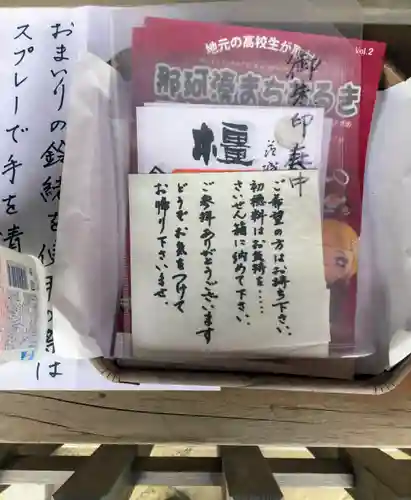 おまいりの鈴緒を使用の際は
スプレーで手を清
地元の高校生が
Vol.2
那珂湊まちあるき
御朱印
中
橿
茨城
ご希望の方はお持ち下さい。
初穂料はお気持を.....
さいせん箱に納めて下さい。
ご参拝ありがとうございます
どうぞお気をつけて
お帰り下さいませ。